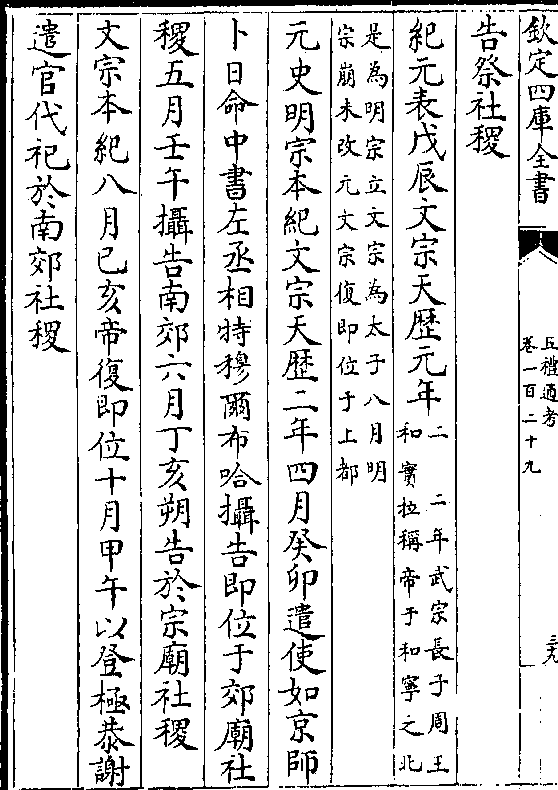 欽定四庫全書
五禮通考
卷一百二十九
三九
告祭社稷
紀元表戊辰文宗天歴元年二　二年武宗長子周王
和實拉稱帝于和寧之北
是為明宗立文宗為太子八月明
宗崩未改元文宗復即位于上都
元史明宗本紀文宗天歴二年四月癸卯遣使如京師
卜日命中書左丞相特穆爾布哈攝告即位于郊廟社
稷五月壬午攝告南郊六月丁亥朔告於宗廟社稷
文宗本紀八月已亥帝復即位十月甲午以登極恭謝
遣官代祀於南郊社稷